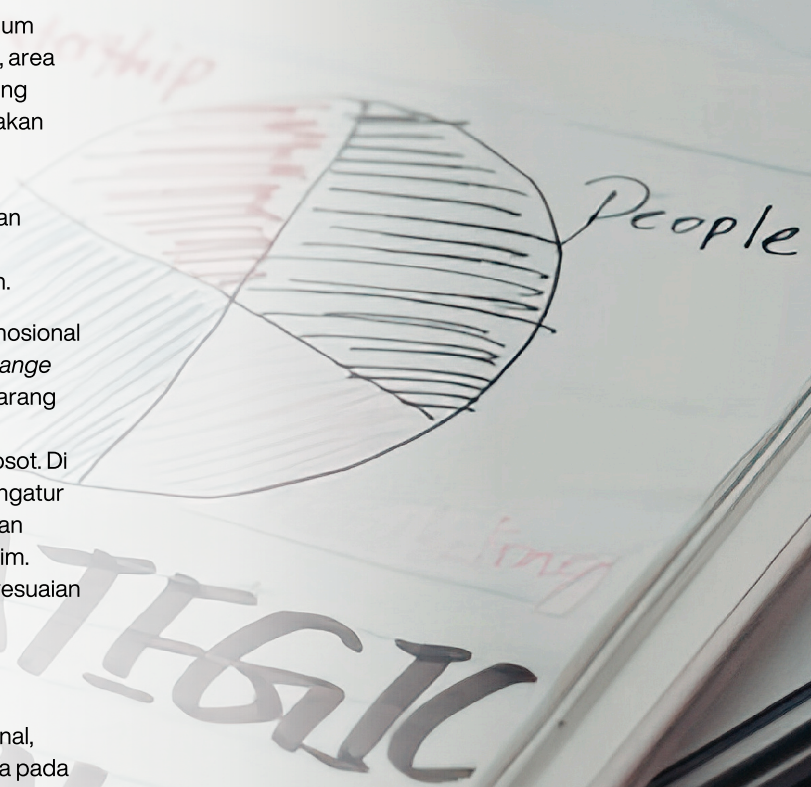 um
, area
ng
akan
an
n.
nosional
ange
arang
osot. Di
ngatur
an
im.
esuaian
nal,
a pada
People
ATEGIC